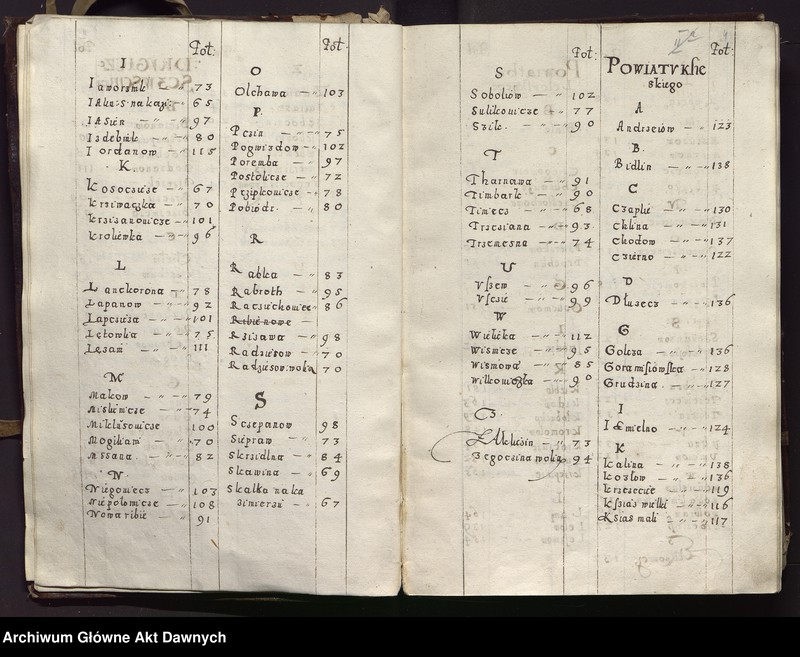 Fol:
I
Iawornik 73
IAkus nakazi 65
IASiEn 97
Isdebnik 80
Iordanow 115
K
Kosocsice 67
Krziwaczka 70
Krzisanowice 101
Krolówka 96
L
Lanckorona 78
Lapanow 92
Lapcsica 101
Lętowka 75
Lęsani 111
M
Makow 79
Mislimice 74
Miklusowice 100
Mogilani 70
Mssana 82
N
Niegowiecz 103
Niepolomicze 108
Nowa ribie 91
Fol:
O
Olchawa 103
P
Pcsin 75
Pogwisdow 102
Poremba 97
Postolicze 72
Przipkowicse 78
Pobiedr 80
R
Rabka 83
Rabroth 95
Racsichowice 86
Ribie nowe
Rsisawa 98
Radsisow 70
Radsisow wola 70
S
Scsepanow 98
Siepraw 73
Skrsidlna 84
Skawina 69
Skalka naka
zimersi 67
Fol:
S
Sobolow 102
Sulikowicze 77
Szik 90
T
Tharnawa 91
Timbark 90
Tiniecz 68
Trzesiana 93
Trzemesna 74
U
Vssew 96
Vscie 99
W
Wielicka 112
Wisnicze 95
Wisniowa 85
Wilkowiczka 90
Z
Zakliczin 73
Zegocsina wola 94
Fol:
POWIATV Kſie
skiego
A
Andrzeiow 123
B
Bidlin 138
C
Czaple 130
Chlina 131
Chodow 137
Czirno 122
D
Dlusecz 136
G
Golcza 136
Gora misiowska 128
Grudzina 127
I
Iemielno 124
K
Kalina 138
Kozlow 136
Krzeseice 119
Ksias wielki 116
Ksias mali 117
Archiwum Główne Akt Dawnych